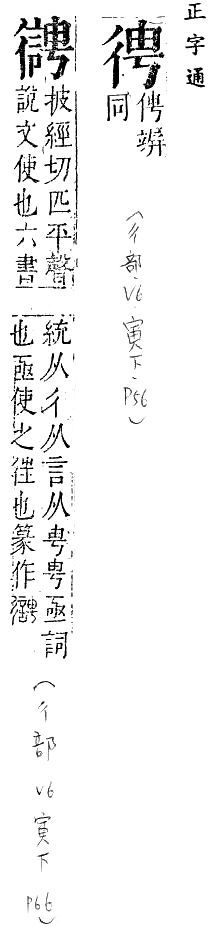 正字通
德
俜竮
同
(彳部·V6·寅下·P56)
𢖊
披經切匹平聲
說文使也六書
統从彳从言从甹甹亟詞
也亟使之往也篆作
(彳部 V6 寅下 P66)